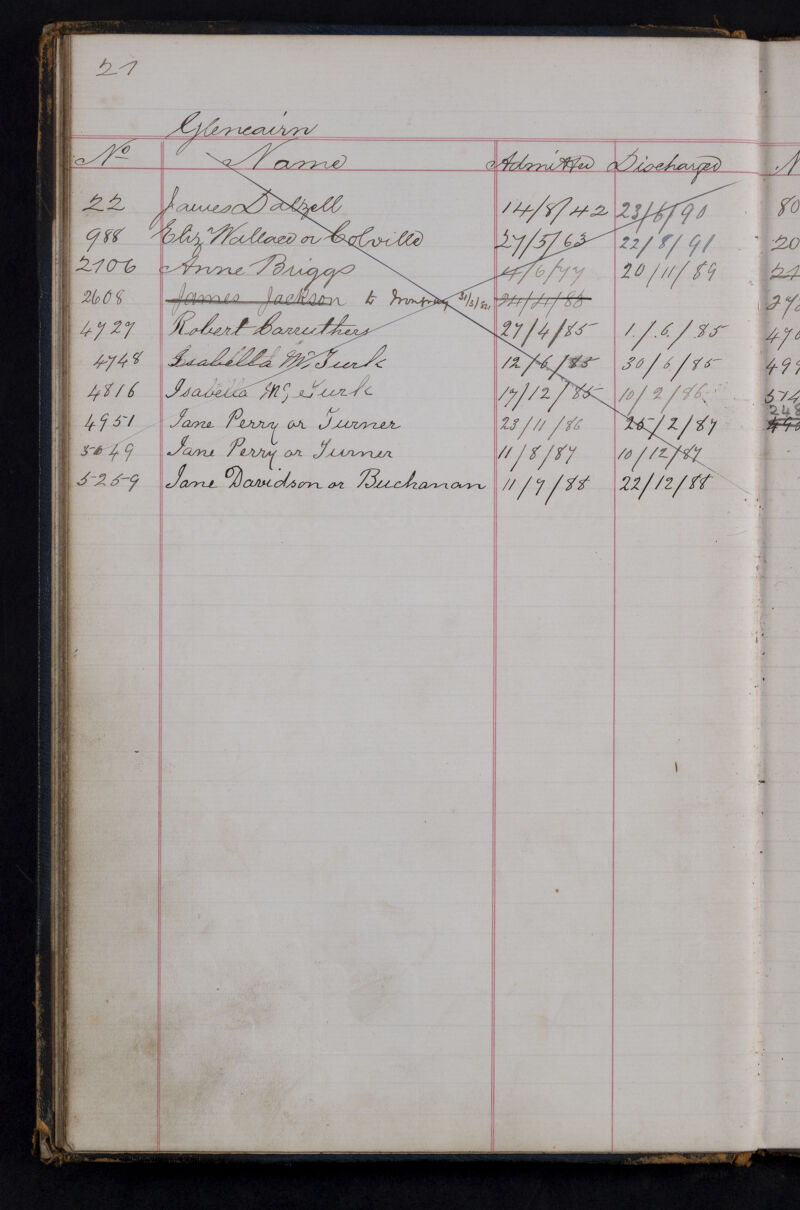 21
Glencairn
No Name Admitted Discharged N
22 James Dalzell 14/8/42 23/6/90 80
988 Eliz Wallace or Colville 27/5/63 22/8/91 20
2106 Anne Briggs 4/6/77 20/11/89 21
2608 James Jackson to Irongray 31/3/81
4727 Robert Carruthers 27/4/85 1/6/85 470
4748 Isabella McTurk 12/6/85 30/6/85 499
4816 Isabella McTurk 17/12/85 10/2/86 514
4951 Jane Perry or Turner 23/11/86 25/2/87 248
5049 Jane Perry or Turner 11/8/87 10/12/87
5259 Jane Davidson or Buchanan 11/7/88 22/12/88